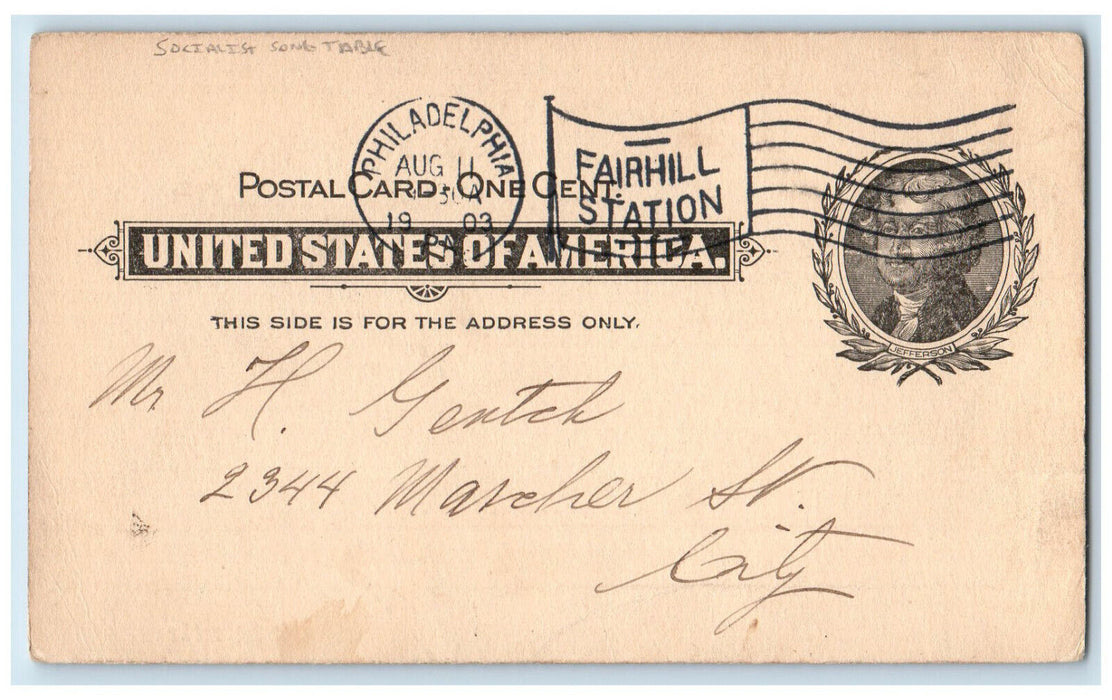 SOCIALIST SONG TABLE
PHILADELPHIA
AUG 11
30A
19 03
PA
FAIRHILL
STATION
POSTAL CARD. ONE CENT.
UNITED STATES OF AMERICA.
THIS SIDE IS FOR THE ADDRESS ONLY.
JEFFERSON
Mr H. Gentch
2344 Marcher St.
City